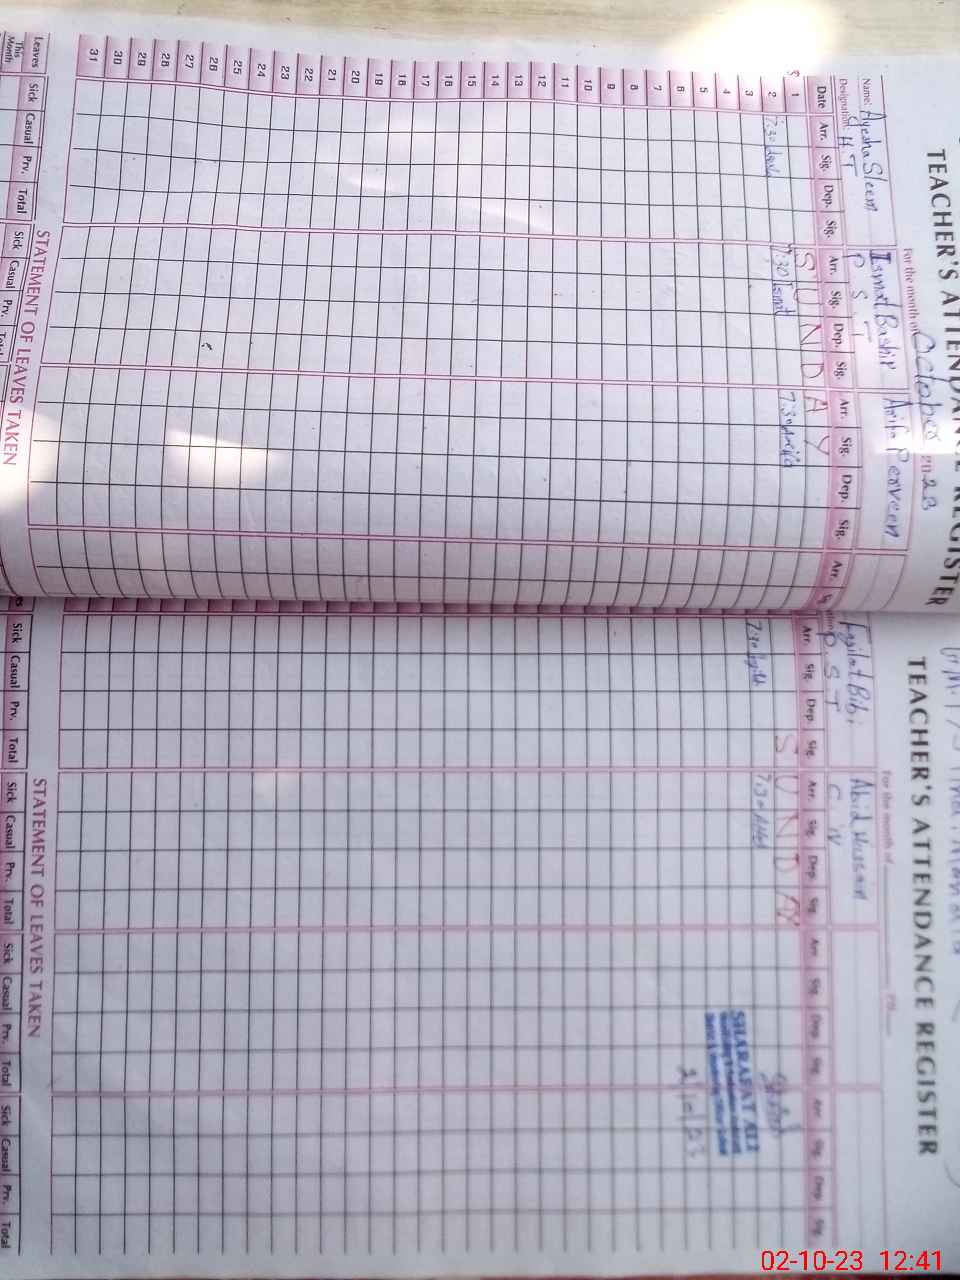 TEACHER'S ATTENDANCE REGISTER
For the month of October 2023
Name: Ayesha Sleem Ismat Bashir Arifa Perveen
Designation: H T P S T
Date Arr. Sig. Dep. Sig. Arr. Sig. Dep. Sig. Arr. Sig. Dep. Sig. Arr.
1 SUNDAY
2 7:30 7:30 Ismat 7:30 Arifa
3
4
5
6
7
8
9
10
11
12
13
14
15
16
17
18
19
20
21
22
23
24
25
26
27
28
29
30
31
STATEMENT OF LEAVES TAKEN
Leaves Sick Casual Prv. Total Sick Casual Prv. Total
This Month
TEACHER'S ATTENDANCE REGISTER
For the month of 20
Bibi Abid Hussain
P S T
Arr. Sig. Dep. Sig. Arr. Sig. Dep. Sig. Arr. Sig. Dep. Sig. Arr. Sig. Dep. Sig.
SUNDAY
7:30 7:30 Abid
SHARAFAT ALI
2/10/23
STATEMENT OF LEAVES TAKEN
Sick Casual Prv. Total Sick Casual Prv. Total Sick Casual Prv. Total Sick Casual Prv. Total
02-10-23 12:41